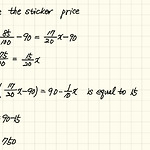 the sticker price
85/100 - 90 = 17/20 x - 90
75/100 = 15/20 x
17/20 x - 90) = 90 - 1/10 x is equal to 15
90 - 15
750